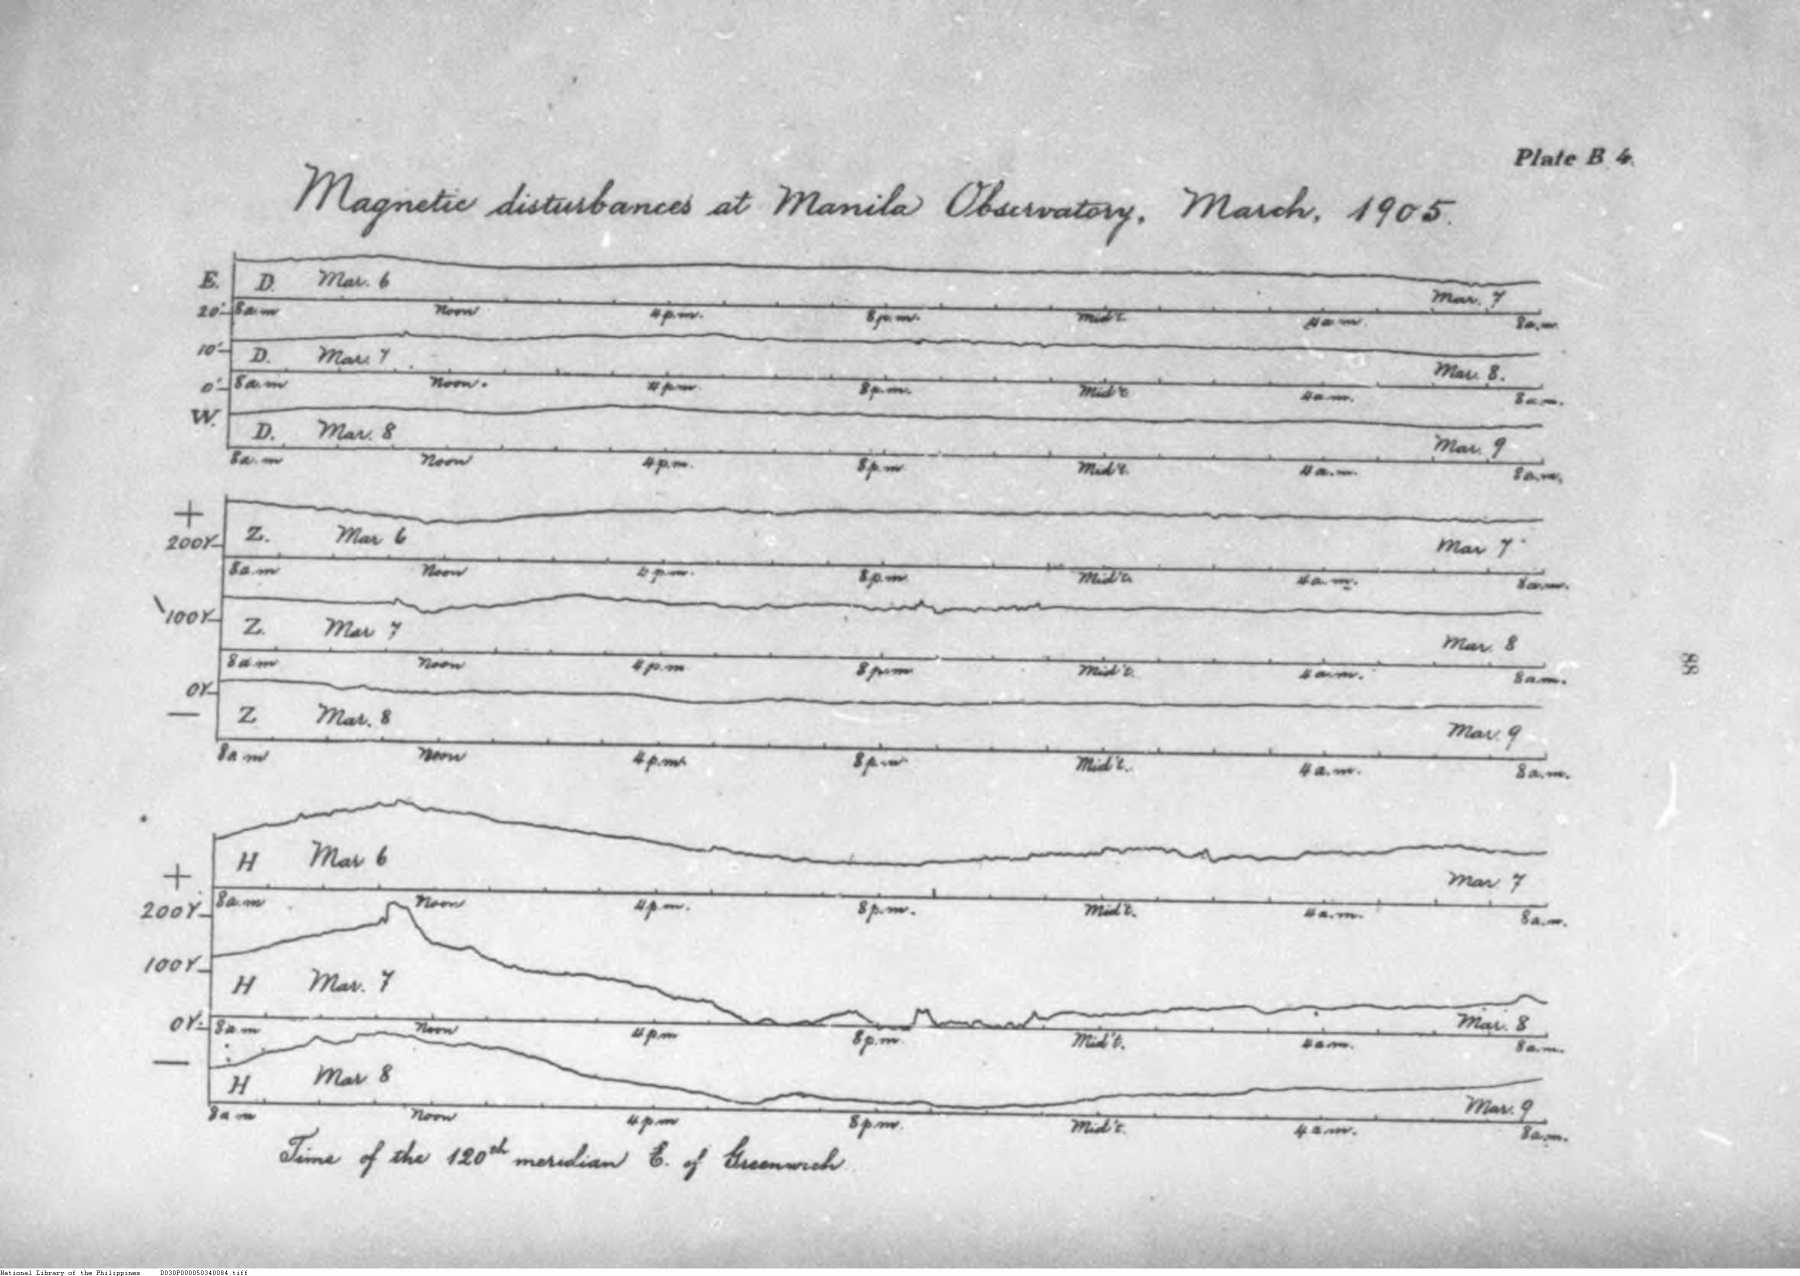 Plate B 4.
Magnetic disturbances at Manila Observatory, March, 1905.
E. D. Mar. 6 Mar. 7
20' 8 a.m Noon 4 p.m. 8 p.m. Mid't. 4 a.m. 8 a.m.
10' D. Mar. 7 Mar. 8.
0' 8 a.m Noon. 4 p.m. 8 p.m. Mid't. 4 a.m. 8 a.m.
W. D. Mar. 8 Mar. 9
8 a.m Noon 4 p.m. 8 p.m Mid't. 4 a.m. 8 a.m.
+
200γ Z. Mar 6 Mar 7
8 a.m Noon 4 p.m. 8 p.m Mid't. 4 a.m. 8 a.m.
100γ Z. Mar 7 Mar. 8
8 a.m Noon 4 p.m 8 p.m Mid't. 4 a.m. 8 a.m.
0γ
− Z Mar. 8 Mar. 9
8 a m Noon 4 p.m. 8 p.m Mid't. 4 a.m. 8 a.m.
88
H Mar 6 Mar 7
+
200γ 8 a.m Noon 4 p.m. 8 p.m. Mid't. 4 a.m. 8 a.m.
100γ H Mar. 7 Mar. 8
0γ 8 a m Noon 4 p.m 8 p.m. Mid't. 4 a.m. 8 a.m.
− H Mar 8 Mar. 9
8 a m Noon 4 p.m 8 p.m. Mid't. 4 a.m. 8 a.m.
Time of the 120th meridian E. of Greenwich.
National Library of the Philippines D030P000050340084.tiff